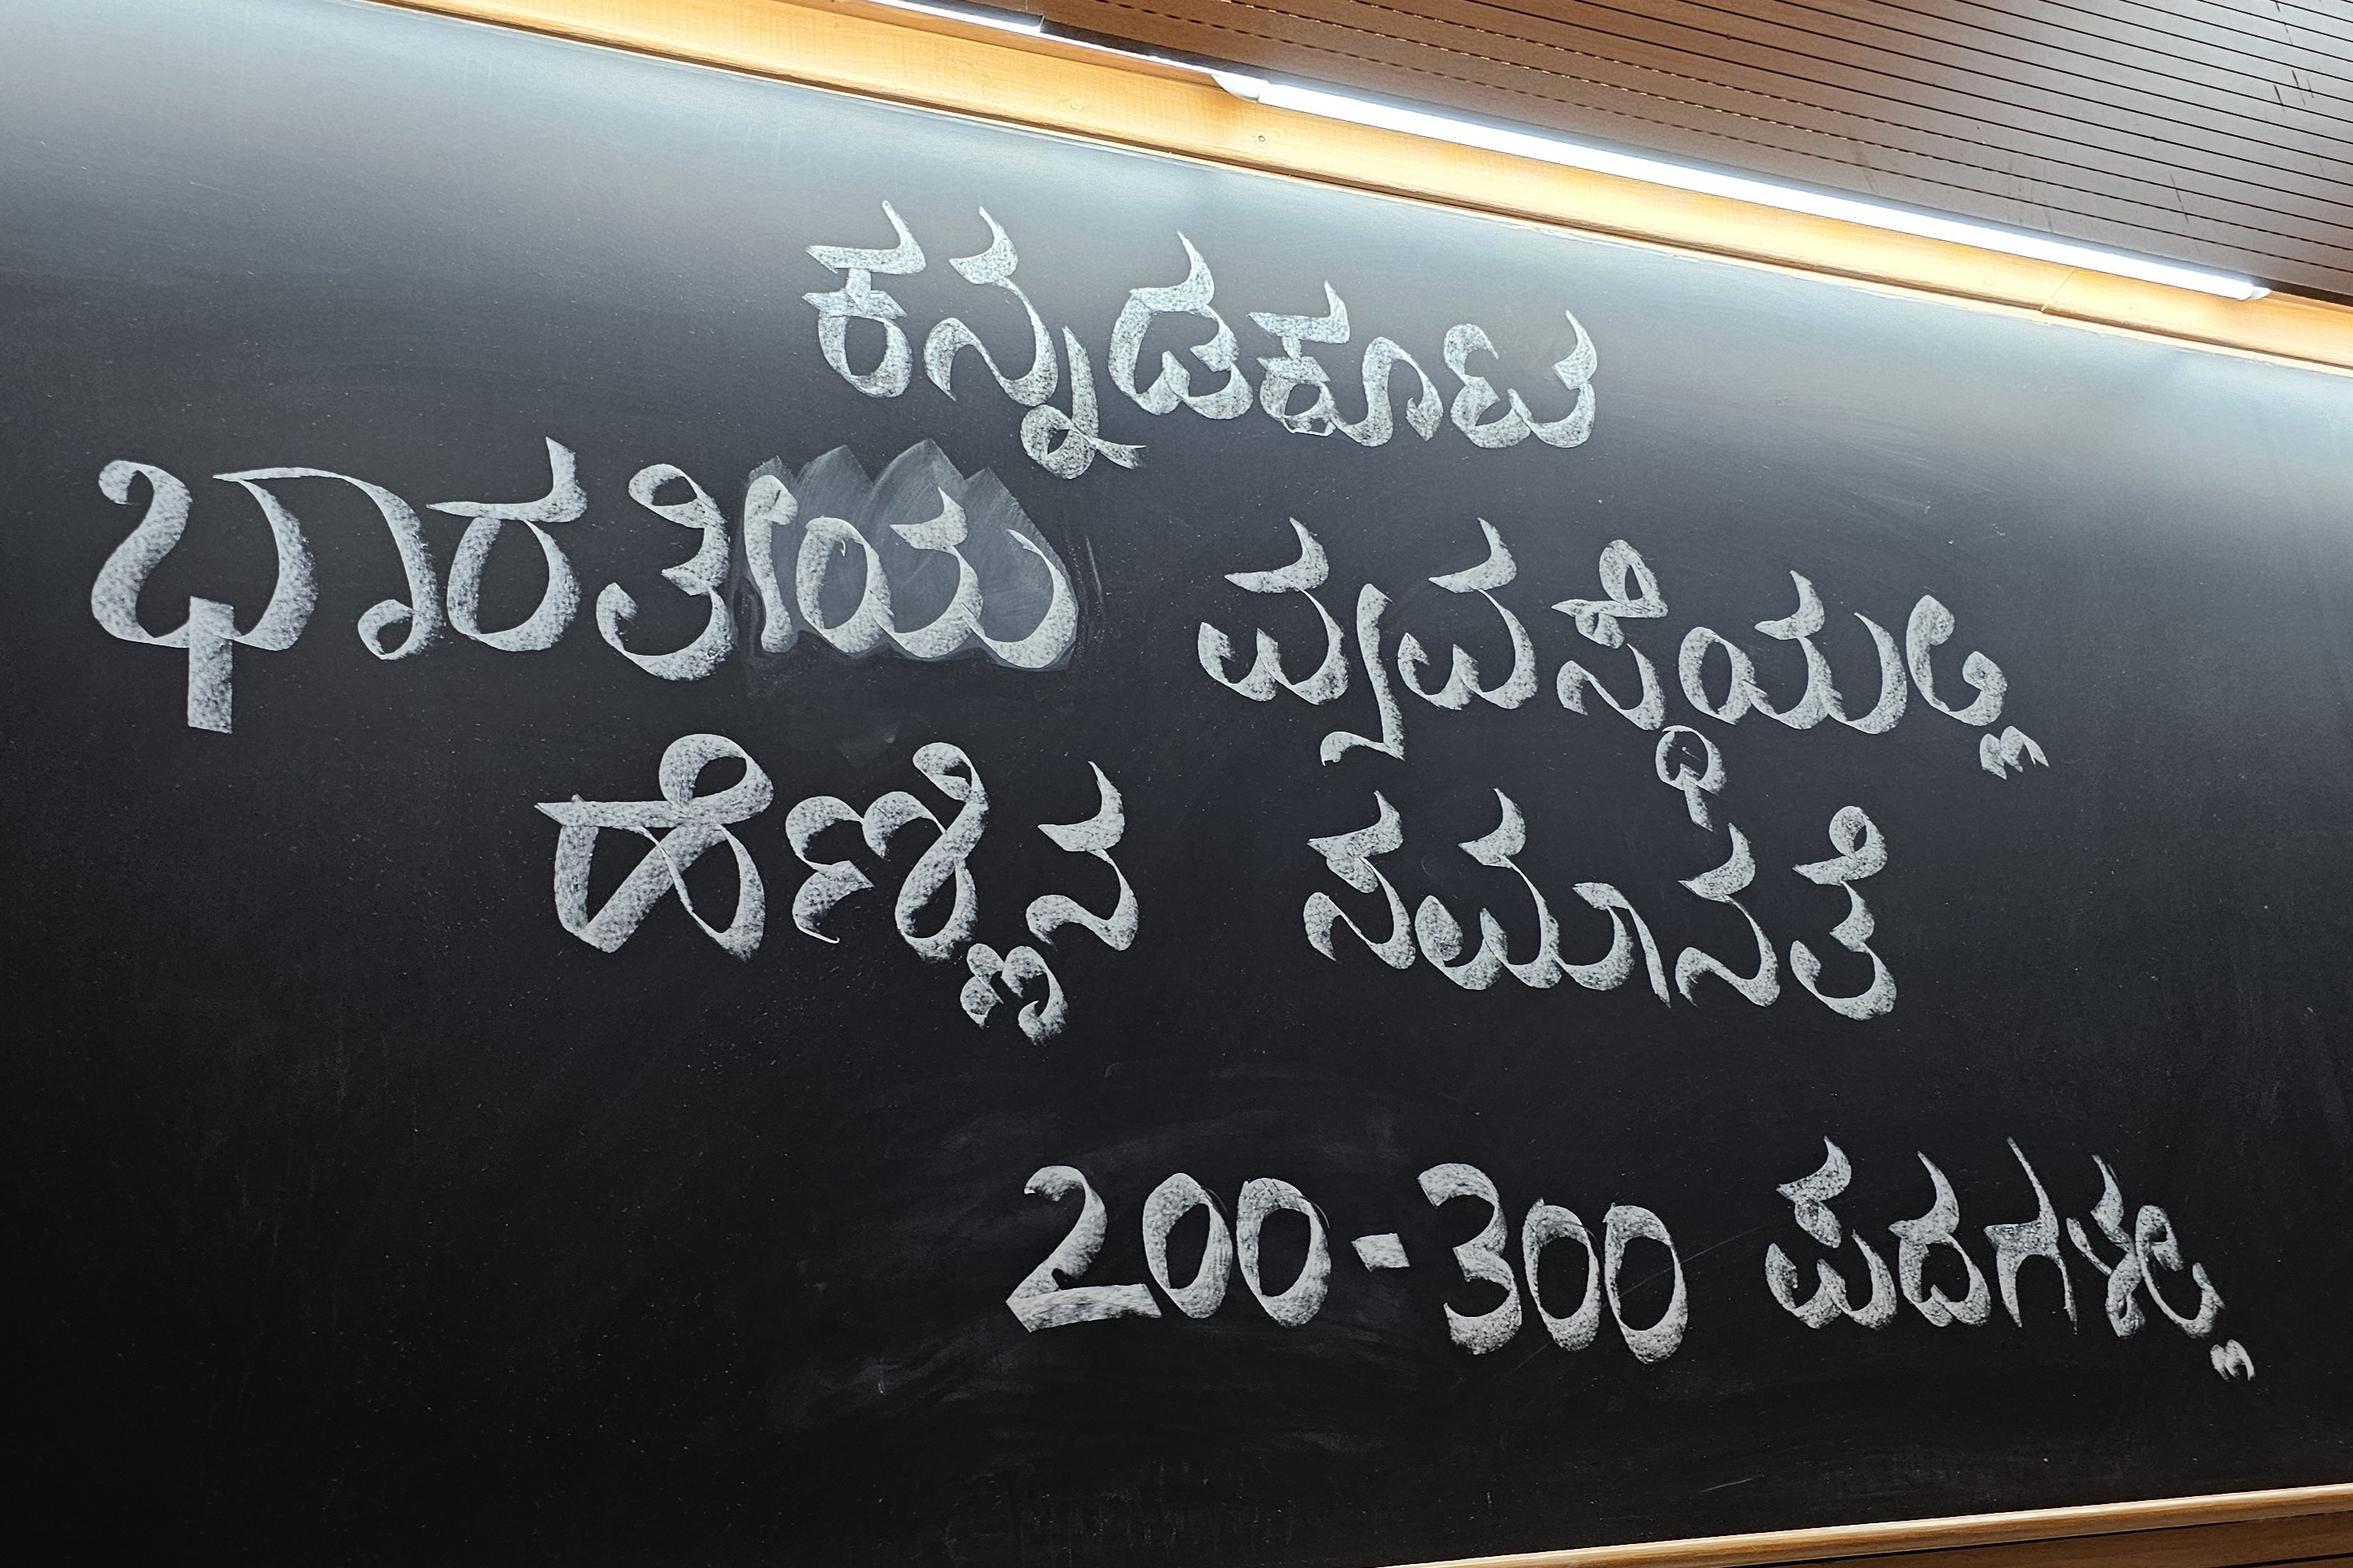 ಕನ್ನಡಕೂಟ
ಭಾರತೀಯ ವ್ಯವಸ್ಥೆಯಲ್ಲಿ
ಹೆಣ್ಣಿನ ಸಮಾನತೆ
200-300 ಪದಗಳಲ್ಲಿ